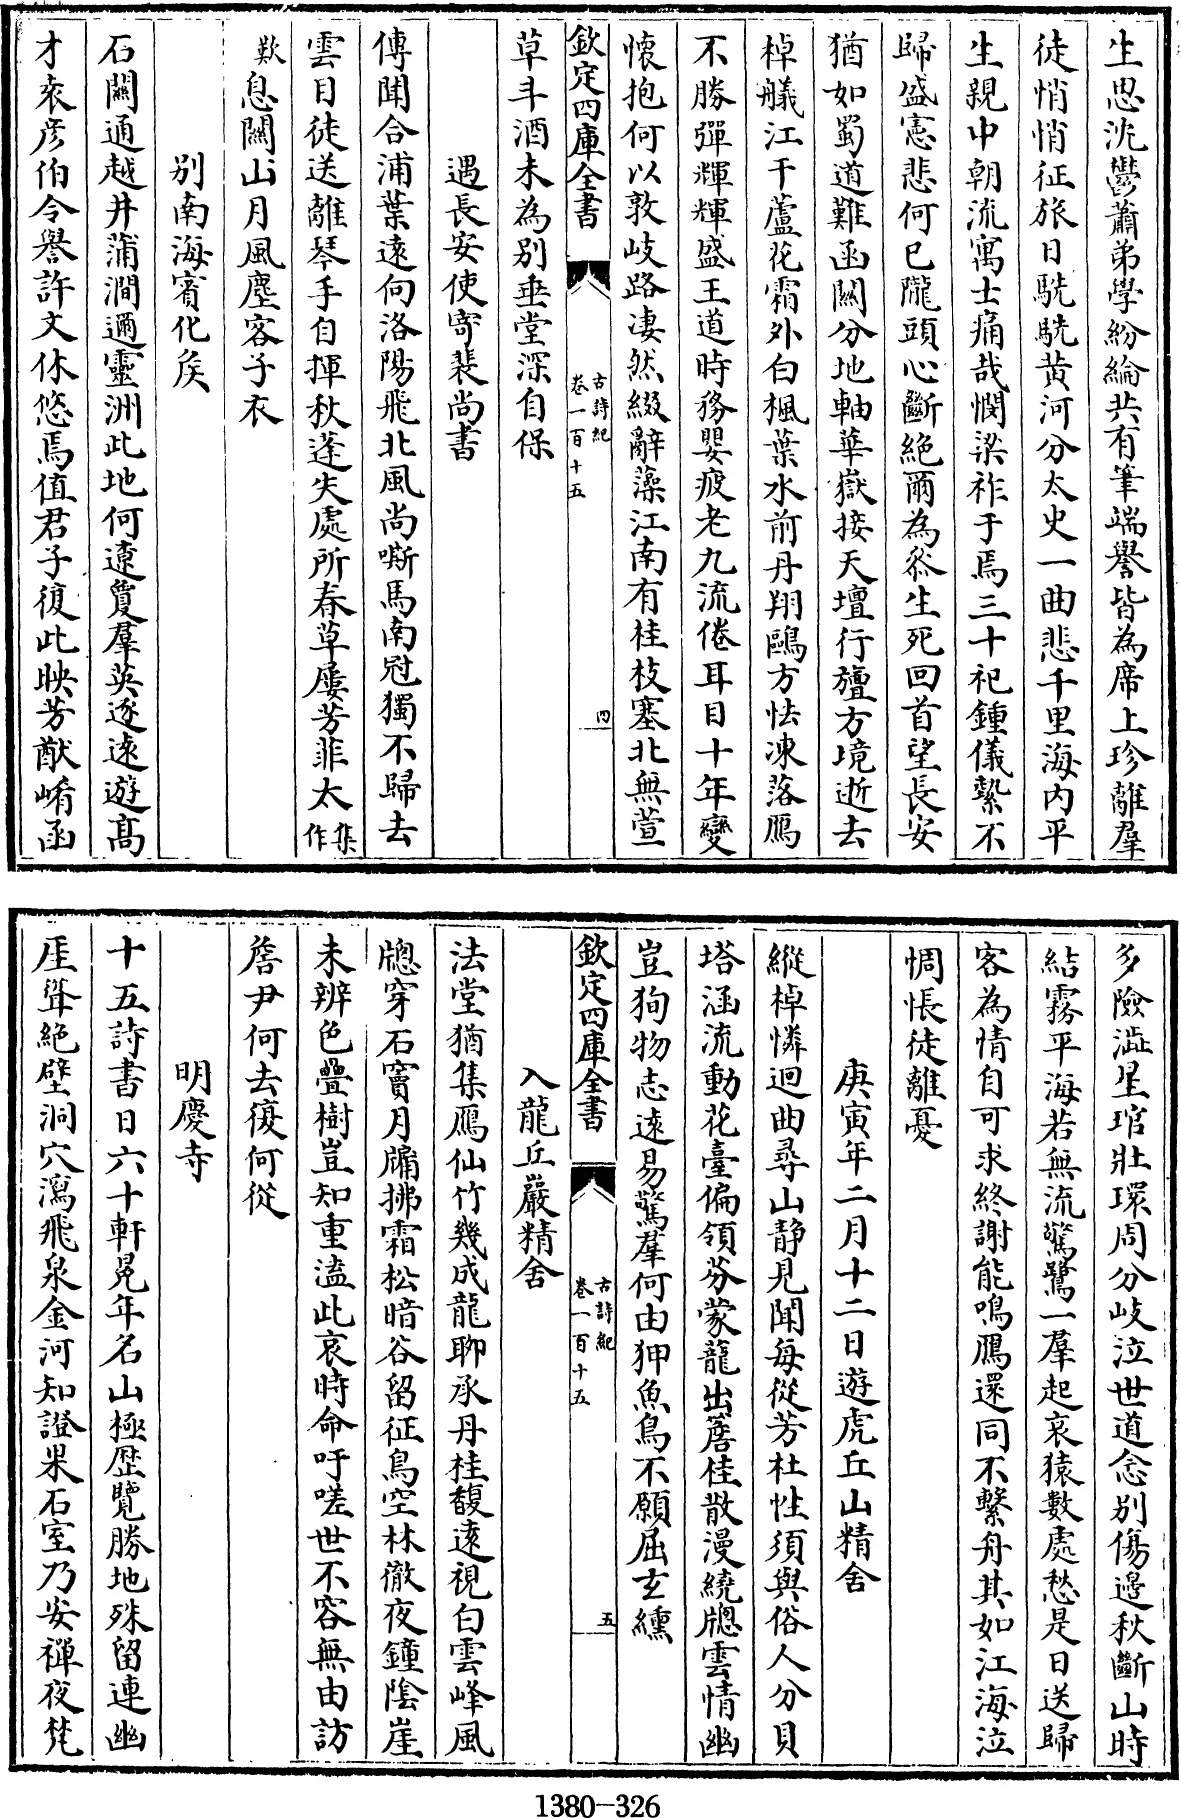 生思沈鬱蕭弟學紛綸共有筆端譽皆為席上珍離羣
徒悄悄征旅日駪駪黄河分太史一曲悲千里海内平
生親中朝流寓士痛哉憫梁祚于焉三十祀鍾儀縶不
歸盛憲悲何已隴頭心斷絶爾為叅生死回首望長安
猶如蜀道難函闗分地軸華嶽接天壇行旜方境逝去
棹艤江干蘆花霜外白楓葉水前丹翔鷗方怯凍落鴈
不勝彈輝輝盛王道時務嬰疲老九流倦耳目十年變
懷抱何以敦岐路凄然綴辭藻江南有桂枝塞北無萱
欽定四庫全書
古詩紀
卷一百十五
四
草斗酒未為别垂堂深自保
遇長安使寄裴尚書
傳聞合浦葉遠向洛陽飛北風尚嘶馬南冠獨不歸去
雲目徒送離琴手自揮秋蓬失處所春草屢芳菲太集作
歎息闗山月風塵客子衣
别南海賓化矦
石闗通越井蒲澗邇靈洲此地何遼敻羣英逐遠遊髙
才袤彦伯令譽許文休悠焉值君子復此映芳猷崤函
多險澁星琯壯環周分岐泣世道念别傷邉秋斷山時
結霧平海若無流驚鷺一羣起哀猿數處愁是日送歸
客為情自可求終謝能鳴鴈還同不繫舟其如江海泣
惆悵徒離憂
庚寅年二月十二日遊虎丘山精舍
縱棹憐迴曲尋山静見聞每從芳杜性須與俗人分貝
塔涵流動花臺偏領芬蒙蘢出簷桂散漫繞牕雲情幽
豈狥物志逺易驚羣何由狎魚鳥不願屈玄纁
欽定四庫全書
古詩紀
卷一百十五
五
入龍丘巖精舍
法堂猶集鴈仙竹幾成龍聊承丹桂馥逺視白雲峰風
牕穿石竇月牖拂霜松暗谷留征鳥空林徹夜鐘陰崖
未辨色疊樹豈知重溘此哀時命吁嗟世不容無由訪
詹尹何去復何從
明慶寺
十五詩書日六十軒冕年名山極歴覽勝地殊留連幽
厓聳絶壁洞穴瀉飛泉金河知證果石室乃安禪夜梵
1380—326